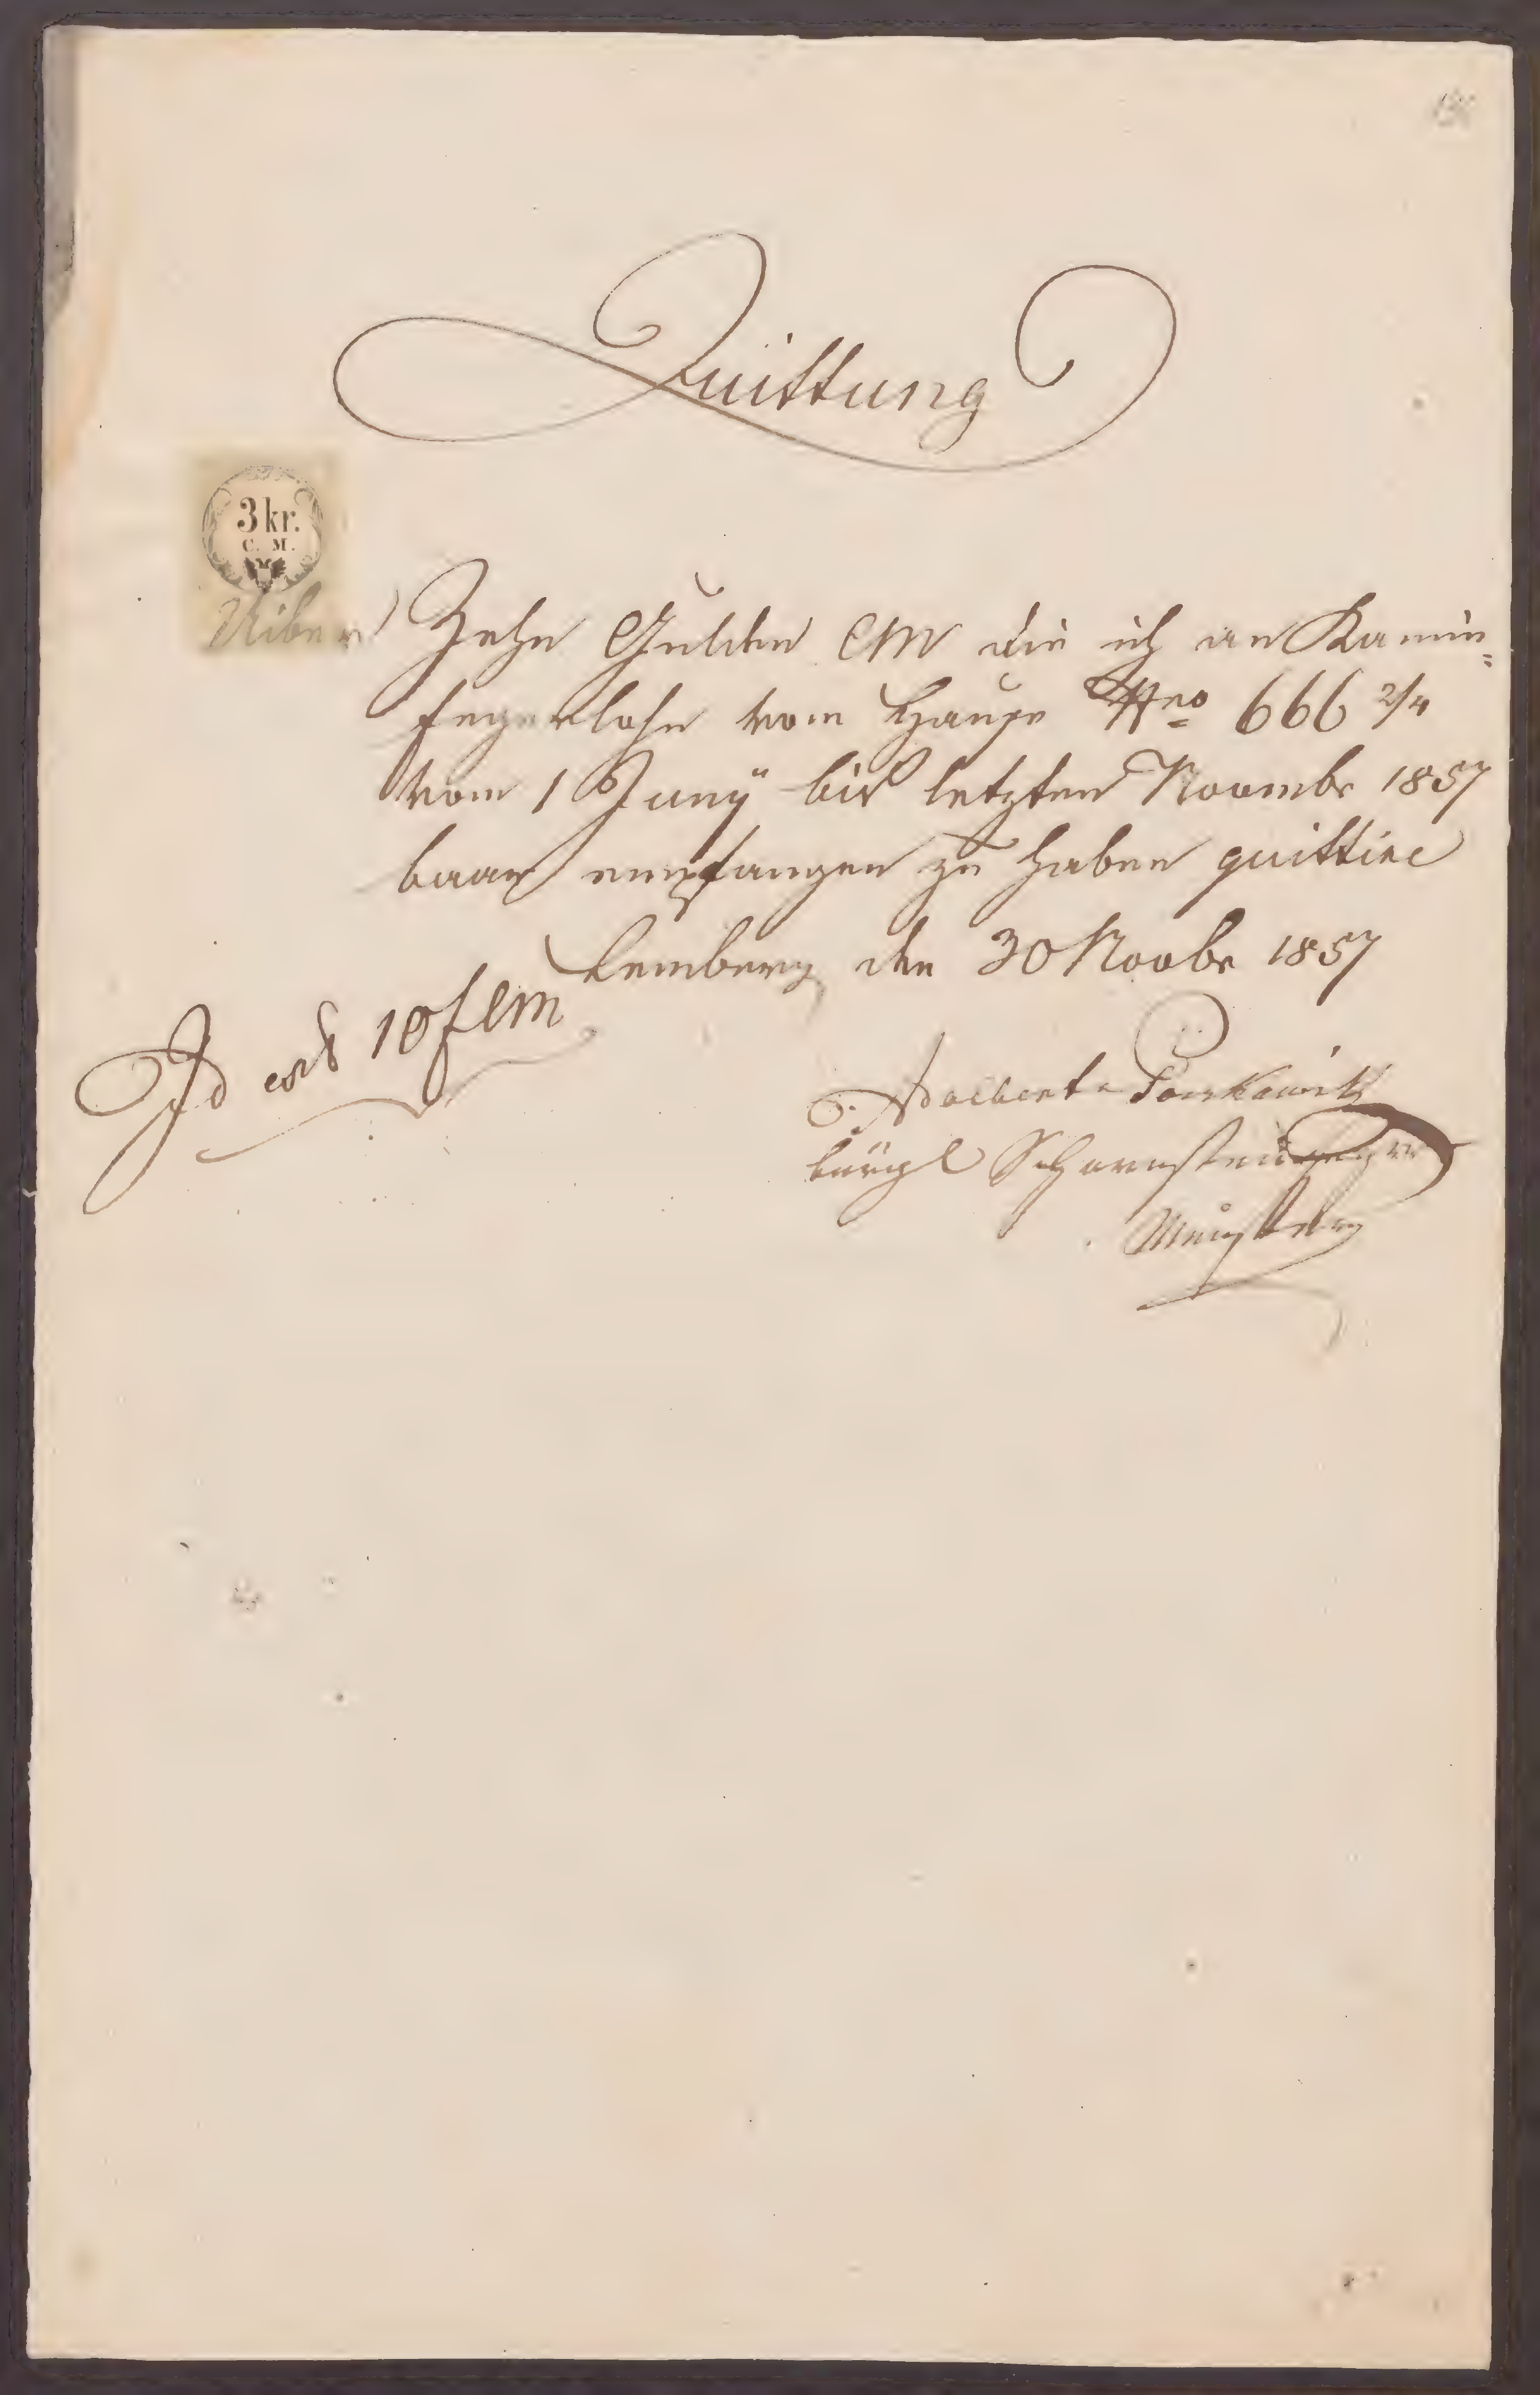 Quittung
3 kr.
C. M.
Uiber Zehn Gulden CM die ich an Kamin=
fegerlohn vom Hause Nro 666 2/4
vom 1 Juny bis letzten Novembr 1857
baar empfangen zu haben quittire
Lemberg den 30 Novbr 1857
Id est 10 f CM
Adalbert
bürgl Schornsteinfeger
Meister